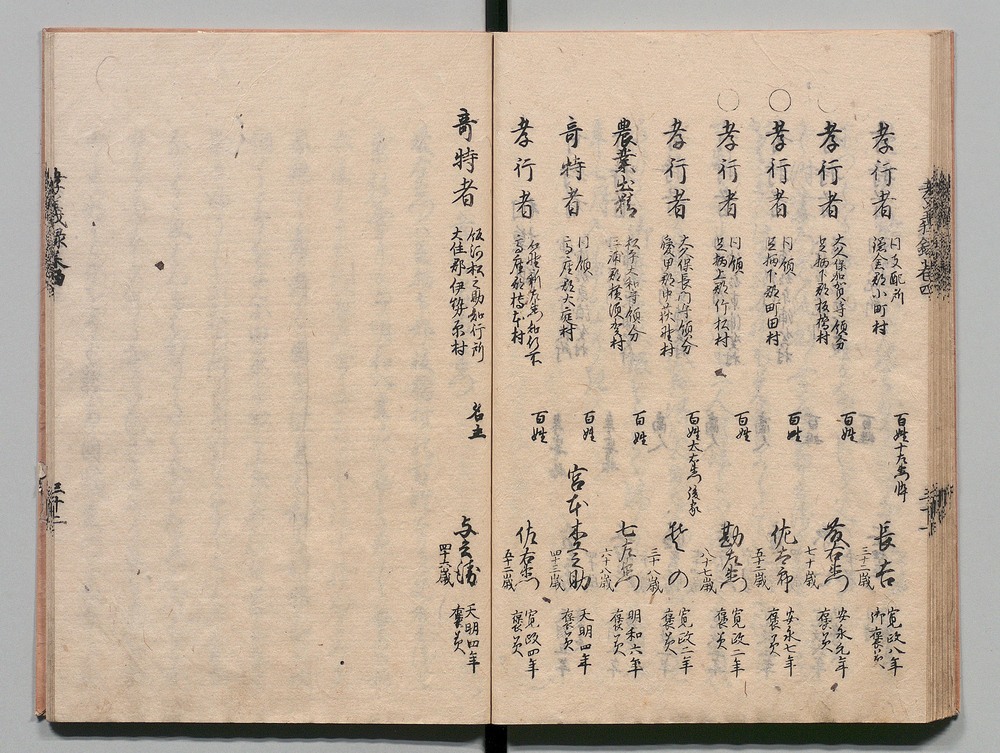 孝行者
同支配所
淘綾郡小町村
百姓十左衛門忰
長吉
三十二歳
寛政八年
御褒美
孝行者
大久保加賀守領分
足柄下郡板橋村
百姓
七十歳
安永元年
褒美
孝行者
同領
足柄下郡町田村
百姓
佐太郎
五十歳
安永七年
褒美
孝行者
同領
足柄上郡竹松村
百姓
勘左衛門
八十七歳
寛政二年
褒美
孝行者
大久保長門守領分
愛甲郡中荻野村
百姓太右衛門後家
その
三十八歳
寛政二年
褒美
農業出精
松平大和守領分
三浦郡横須賀村
百姓
七左衛門
六十八歳
明和六年
褒美
奇特者
同領
高座郡大庭村
百姓
宮本杢之助
四十三歳
天明四年
褒美
孝行者
高座郡
百姓
佐右衛門
五十二歳
寛政四年
褒美
奇特者
飯河松之助知行所
大住郡伊勢原村
名主
与三勝
四十六歳
天明四年
褒美
孝義録巻四
三十二